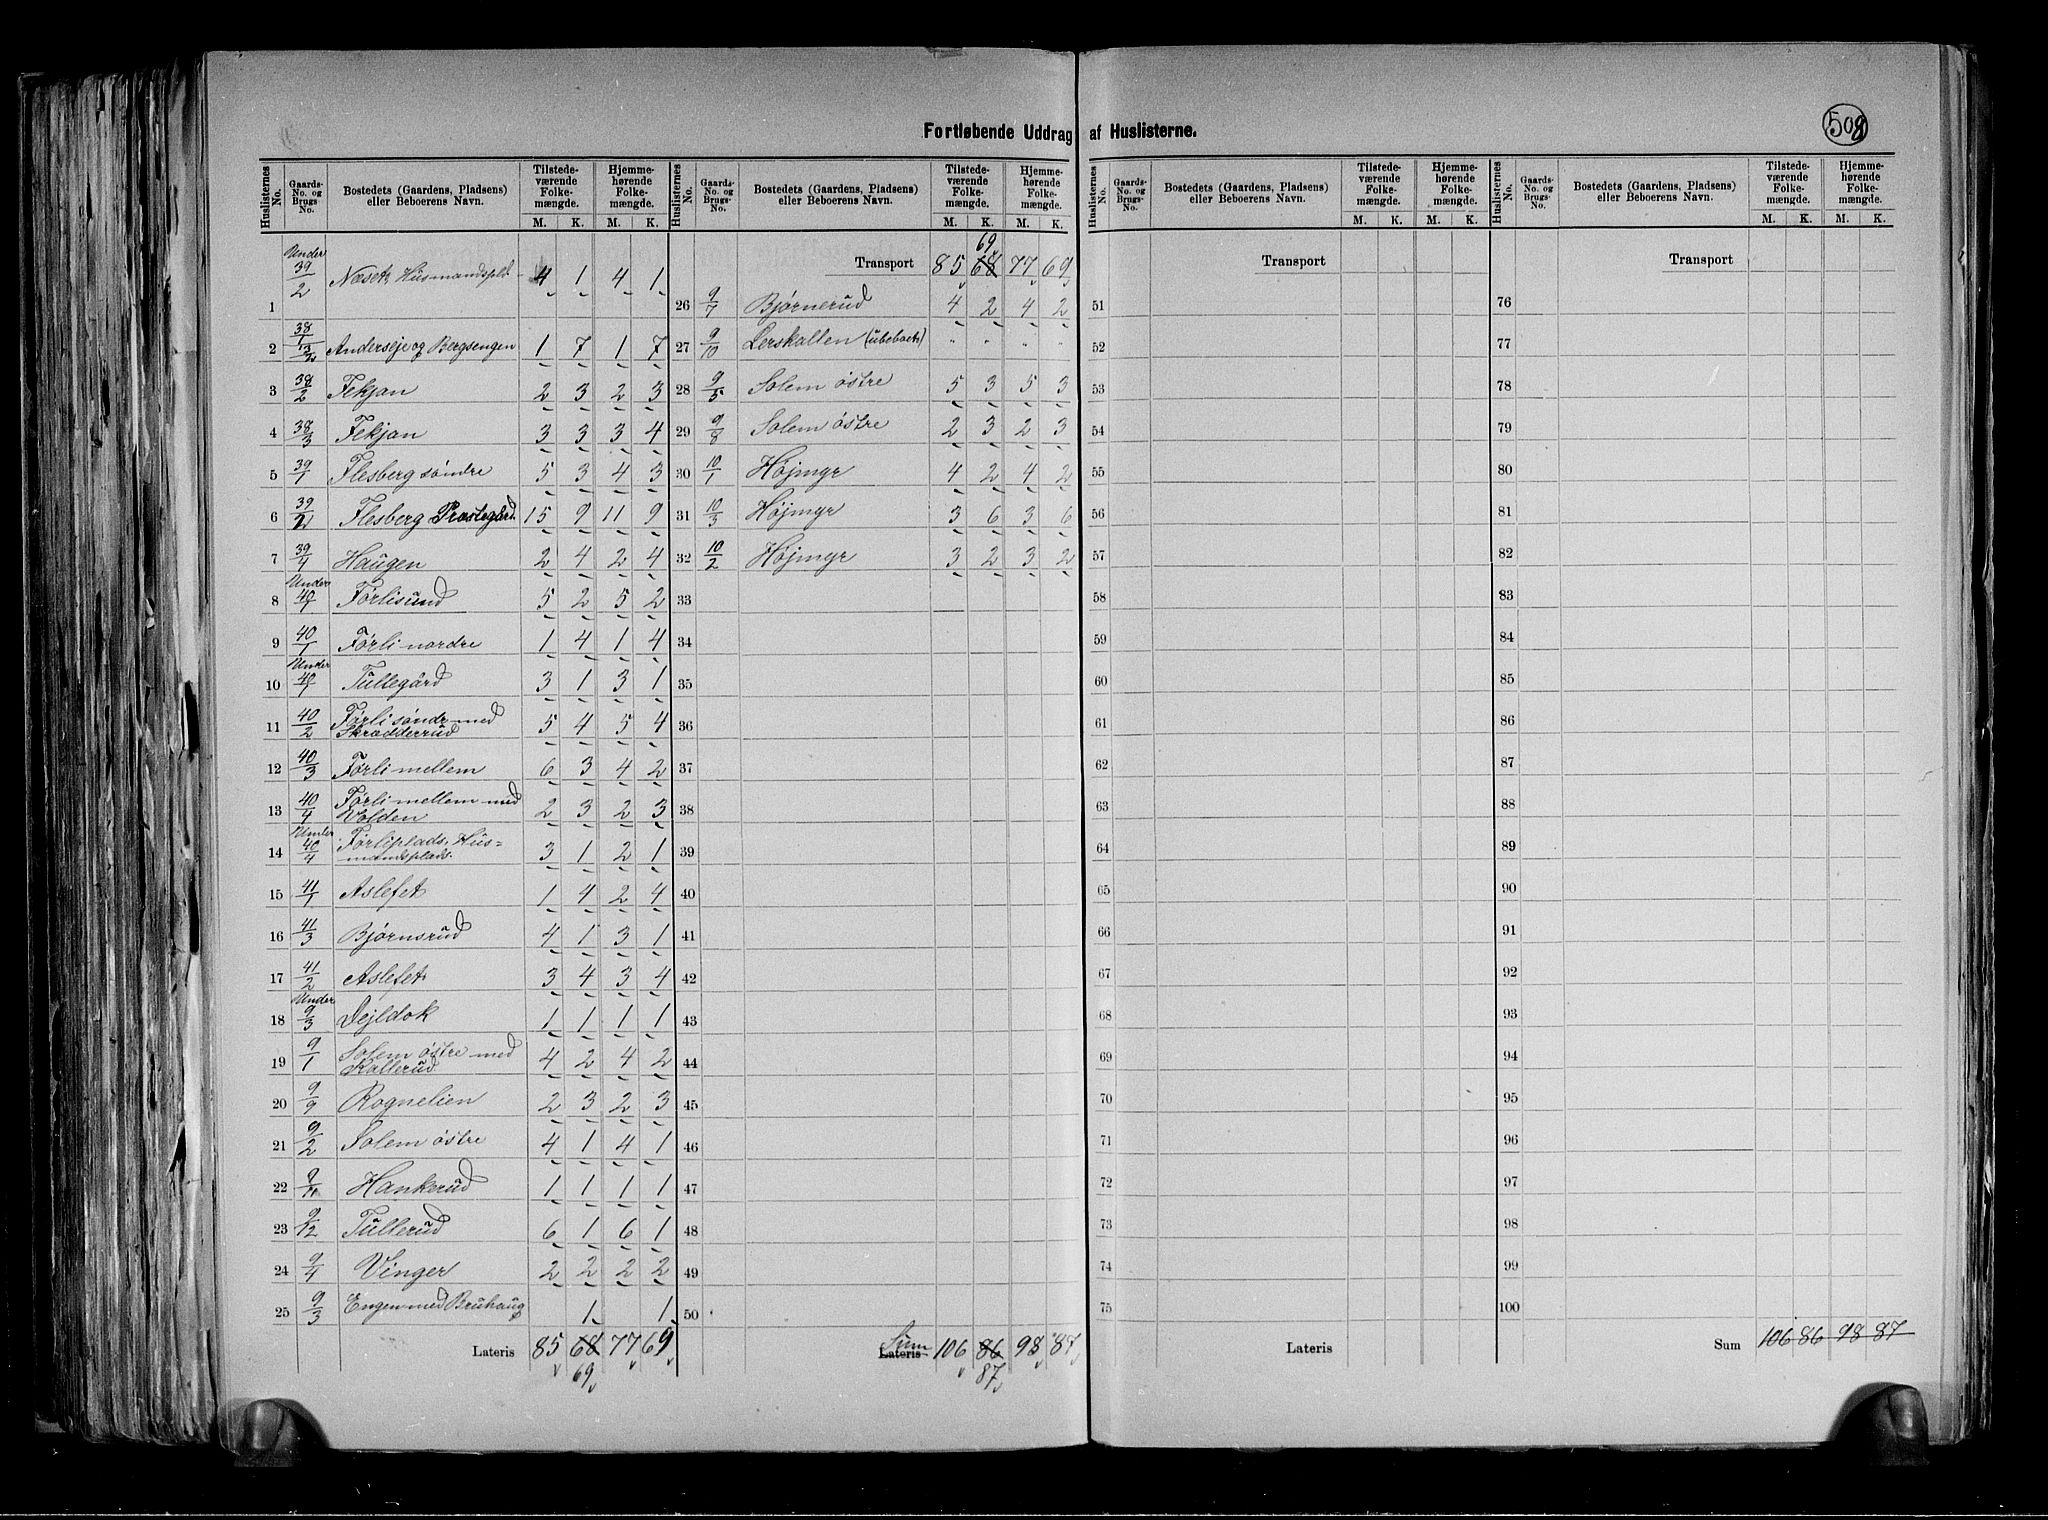 Fortløbende Uddrag af Huslisterne.
508
Huslisternes No. Gaards-No. og Brugs-No. Bostedets (Gaardens, Pladsen) eller Beboerens Navn. Tilstedeværende Folkemængde. M. K. Hjemmehørende Folkemængde. M. K.
1 Under 39/2 Næset, Husmandspld. 4 1 4 1
2 Anderseje og Bergsengen 1 7 1 7
3 38/2 Tekjan 2 3 2 3
4 38/3 Tekjan 3 3 3 4
5 39/1 Flesberg søndre 5 3 4 3
6 39/2 Flesberg Præstegård 15 9 11 9
7 39/4 Haugen 2 4 2 4
8 Under 40/1 Førlisund 5 2 5 2
9 40/1 Førli nordre 1 4 1 4
10 Under 40/1 Tullegård 3 1 3 1
11 40/2 Førli søndr. med Skrædderrud 5 4 5 4
12 40/3 Førli mellem 6 3 4 2
13 40/4 Førli mellem med Volden 2 3 2 3
14 Under 40/4 Førliplads, Husmandsplads. 3 1 2 1
15 41/1 Aslefet 1 4 2 4
16 41/3 Bjørnsrud 4 1 3 1
17 41/2 Aslefet 3 4 3 4
18 Under 9/3 Dejldok 1 1 1 1
19 9/1 Solem østre med Kallerud 4 2 4 2
20 9/9 Rognelien 2 3 2 3
21 9/2 Solem østre 4 1 4 1
22 9/11 Hankerud 1 1 1 1
23 9/12 Tullerud 6 1 6 1
24 9/4 Vinger 2 2 2 2
25 9/3 Engen med Bruhaug 1 1
Lateris 85 68 77 69
69
Huslisternes No. Gaards-No. og Brugs-No. Bostedets (Gaardens, Pladsen) eller Beboerens Navn. Tilstedeværende Folkemængde. M. K. Hjemmehørende Folkemængde. M. K.
69
Transport 85 68 77 69
26 9/7 Bjørnerud 4 2 4 2
27 9/10 Lerskallen (ubeboet) " " " "
28 9/5 Solem østre 5 3 5 3
29 9/8 Solem østre 2 3 2 3
30 10/1 Højmyr 4 2 4 2
31 10/3 Højmyr 3 6 3 6
32 10/2 Højmyr 3 2 3 2
33
34
35
36
37
38
39
40
41
42
43
44
45
46
47
48
49
50
Sum
Lateris 106 86 98 87
87
Huslisternes No. Gaards-No. og Brugs-No. Bostedets (Gaardens, Pladsen) eller Beboerens Navn. Tilstedeværende Folkemængde. M. K. Hjemmehørende Folkemængde. M. K.
Transport
51
52
53
54
55
56
57
58
59
60
61
62
63
64
65
66
67
68
69
70
71
72
73
74
75
Lateris
Huslisternes No. Gaards-No. og Brugs-No. Bostedets (Gaardens, Pladsen) eller Beboerens Navn. Tilstedeværende Folkemængde. M. K. Hjemmehørende Folkemængde. M. K.
Transport
76
77
78
79
80
81
82
83
84
85
86
87
88
89
90
91
92
93
94
95
96
97
98
99
100
Sum 106 86 98 87